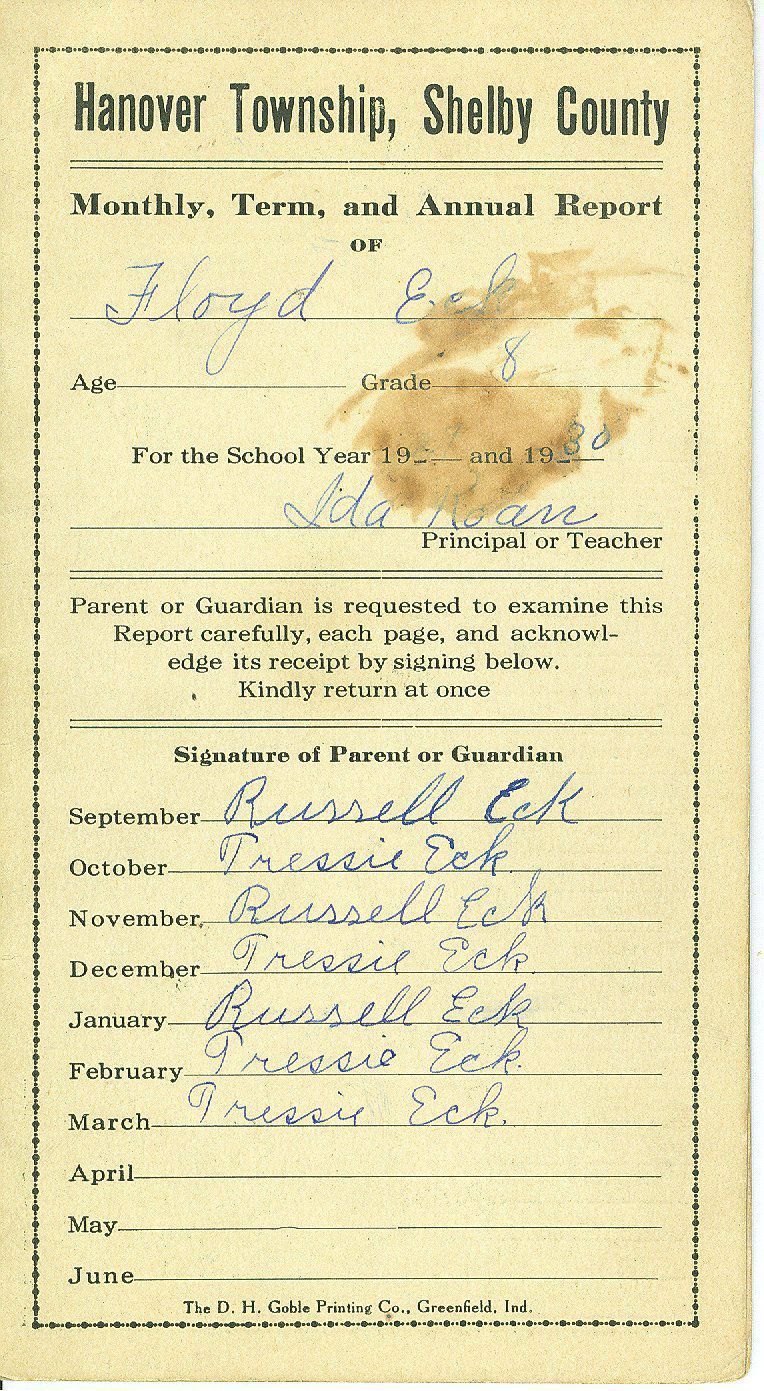 Hanover Township, Shelby County
Monthly, Term, and Annual Report
OF
Floyd Eck
Age Grade 8
For the School Year 19 and 1930
Ida Koan
Principal or Teacher
Parent or Guardian is requested to examine this
Report carefully, each page, and acknowl-
edge its receipt by signing below.
Kindly return at once
Signature of Parent or Guardian
September Russell Eck
October Tressie Eck
November Russell Eck
December Tressie Eck
January Russell Eck
February Tressie Eck
March Tressie Eck.
April
May
June
The D. H. Goble Printing Co., Greenfield, Ind.